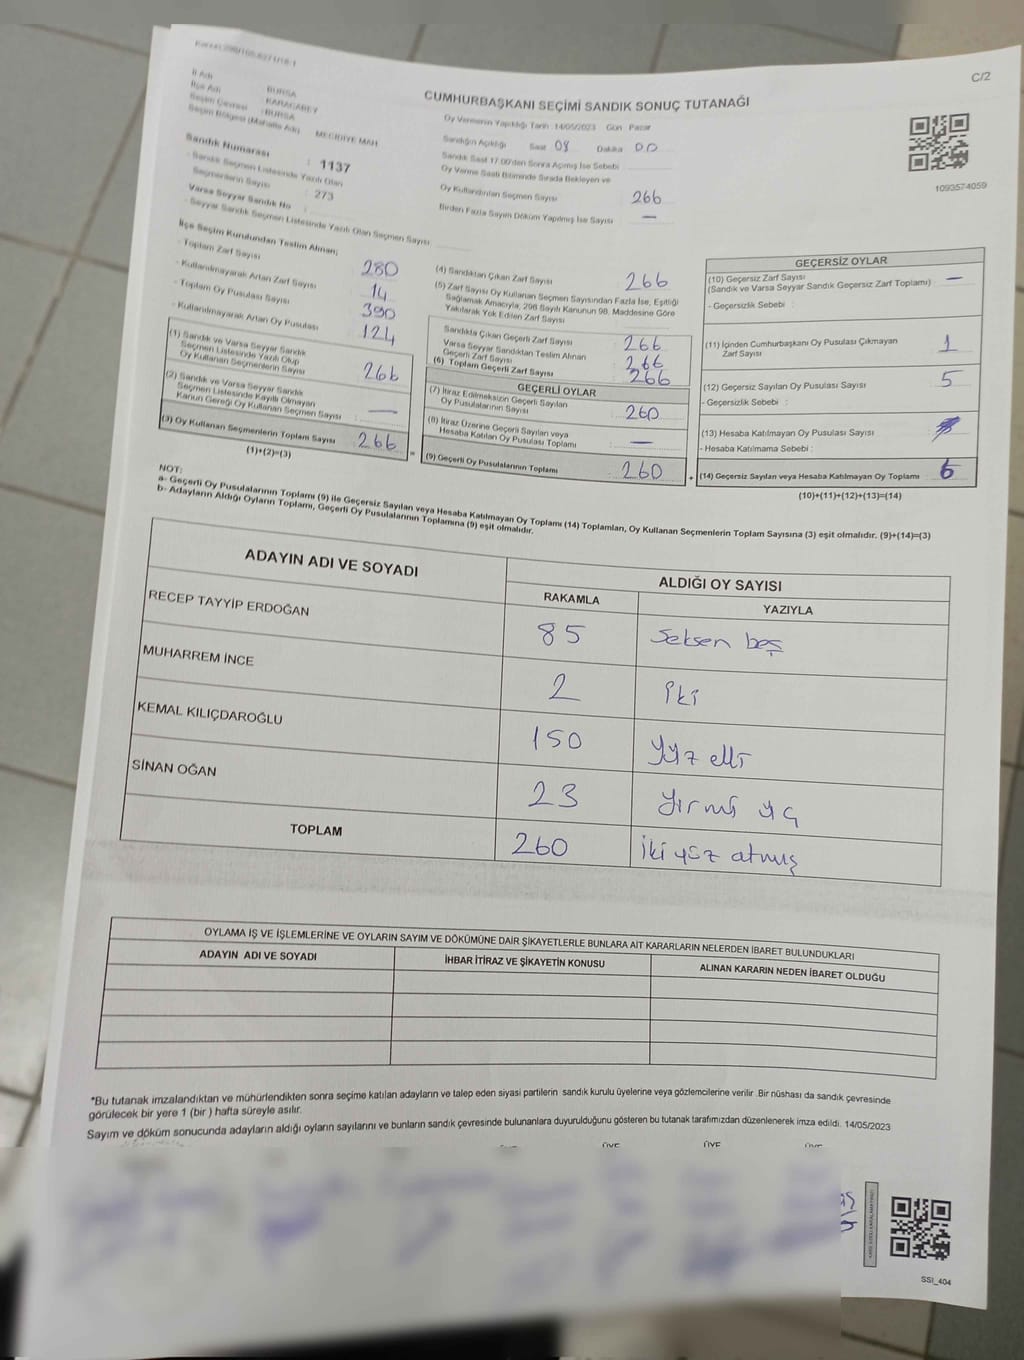 C/2
İl Adı : BURSA
İlçe Adı : KARACABEY
Seçim Çevresi : BURSA
Seçim Bölgesi (Mahalle Adı) : MECİDİYE MAH.
CUMHURBAŞKANI SEÇİMİ SANDIK SONUÇ TUTANAĞI
Oy Vermenin Yapıldığı Tarih : 14/05/2023 Gün : Pazar
Sandığın Açıldığı Saat 08 Dakika 00
Sandık Saat 17:00'den Sonra Açılmış İse Sebebi
Oy Verme Saati Bitiminde Sırada Bekleyen ve
Oy Kullandırılan Seçmen Sayısı 266
Birden Fazla Sayım Döküm Yapılmış İse Sayısı —
1093574059
Sandık Numarası : 1137
- Sandık Seçmen Listesinde Yazılı Olan
Seçmenlerin Sayısı : 273
Varsa Seyyar Sandık No :
- Seyyar Sandık Seçmen Listesinde Yazılı Olan Seçmen Sayısı :
İlçe Seçim Kurulundan Teslim Alınan;
- Toplam Zarf Sayısı 280
- Kullanılmayarak Artan Zarf Sayısı 14
- Toplam Oy Pusulası Sayısı 390
- Kullanılmayarak Artan Oy Pusulası 124
(1) Sandık ve Varsa Seyyar Sandık
Seçmen Listesinde Yazılı Olup
Oy Kullanan Seçmenlerin Sayısı 266
(2) Sandık ve Varsa Seyyar Sandık
Seçmen Listesinde Kayıtlı Olmayan
Kanun Gereği Oy Kullanan Seçmen Sayısı : —
(3) Oy Kullanan Seçmenlerin Toplam Sayısı : 266
(1)+(2)=(3)
(4) Sandıktan Çıkan Zarf Sayısı 266
(5) Zarf Sayısı Oy Kullanan Seçmen Sayısından Fazla İse, Eşitliği
Sağlamak Amacıyla; 298 Sayılı Kanunun 98. Maddesine Göre
Yakılarak Yok Edilen Zarf Sayısı
Sandıkta Çıkan Geçerli Zarf Sayısı 266
Varsa Seyyar Sandıktan Teslim Alınan
Geçerli Zarf Sayısı 266
(6) Toplam Geçerli Zarf Sayısı 266
GEÇERLİ OYLAR
(7) İtiraz Edilmeksizin Geçerli Sayılan
Oy Pusulalarının Sayısı 260
(8) İtiraz Üzerine Geçerli Sayılan veya
Hesaba Katılan Oy Pusulası Toplamı —
= (9) Geçerli Oy Pusulalarının Toplamı 260
GEÇERSİZ OYLAR
(10) Geçersiz Zarf Sayısı —
(Sandık ve Varsa Seyyar Sandık Geçersiz Zarf Toplamı)
- Geçersizlik Sebebi :
(11) İçinden Cumhurbaşkanı Oy Pusulası Çıkmayan
Zarf Sayısı 1
(12) Geçersiz Sayılan Oy Pusulası Sayısı 5
- Geçersizlik Sebebi :
(13) Hesaba Katılmayan Oy Pusulası Sayısı
- Hesaba Katılmama Sebebi :
+ (14) Geçersiz Sayılan veya Hesaba Katılmayan Oy Toplamı 6
(10)+(11)+(12)+(13)=(14)
NOT:
a- Geçerli Oy Pusulalarının Toplamı (9) ile Geçersiz Sayılan veya Hesaba Katılmayan Oy Toplamı (14) Toplamları, Oy Kullanan Seçmenlerin Toplam Sayısına (3) eşit olmalıdır. (9)+(14)=(3)
b- Adayların Aldığı Oyların Toplamı, Geçerli Oy Pusulalarının Toplamına (9) eşit olmalıdır.
ADAYIN ADI VE SOYADI
ALDIĞI OY SAYISI
RAKAMLA YAZIYLA
RECEP TAYYİP ERDOĞAN 85 Seksen beş
MUHARREM İNCE 2 iki
KEMAL KILIÇDAROĞLU 150 Yüz elli
SİNAN OĞAN 23 Yirmi üç
TOPLAM 260 iki yüz atmış
OYLAMA İŞ VE İŞLEMLERİNE VE OYLARIN SAYIM VE DÖKÜMÜNE DAİR ŞİKAYETLERLE BUNLARA AİT KARARLARIN NELERDEN İBARET BULUNDUKLARI
ADAYIN ADI VE SOYADI İHBAR İTİRAZ VE ŞİKAYETİN KONUSU ALINAN KARARIN NEDEN İBARET OLDUĞU
*Bu tutanak imzalandıktan ve mühürlendikten sonra seçime katılan adayların ve talep eden siyasi partilerin sandık kurulu üyelerine veya gözlemcilerine verilir. Bir nüshası da sandık çevresinde
görülecek bir yere 1 (bir ) hafta süreyle asılır.
Sayım ve döküm sonucunda adayların aldığı oyların sayılarını ve bunların sandık çevresinde bulunanlara duyurulduğunu gösteren bu tutanak tarafımızdan düzenlenerek imza edildi. 14/05/2023
ÜYE ÜYE ÜYE
SSI_404